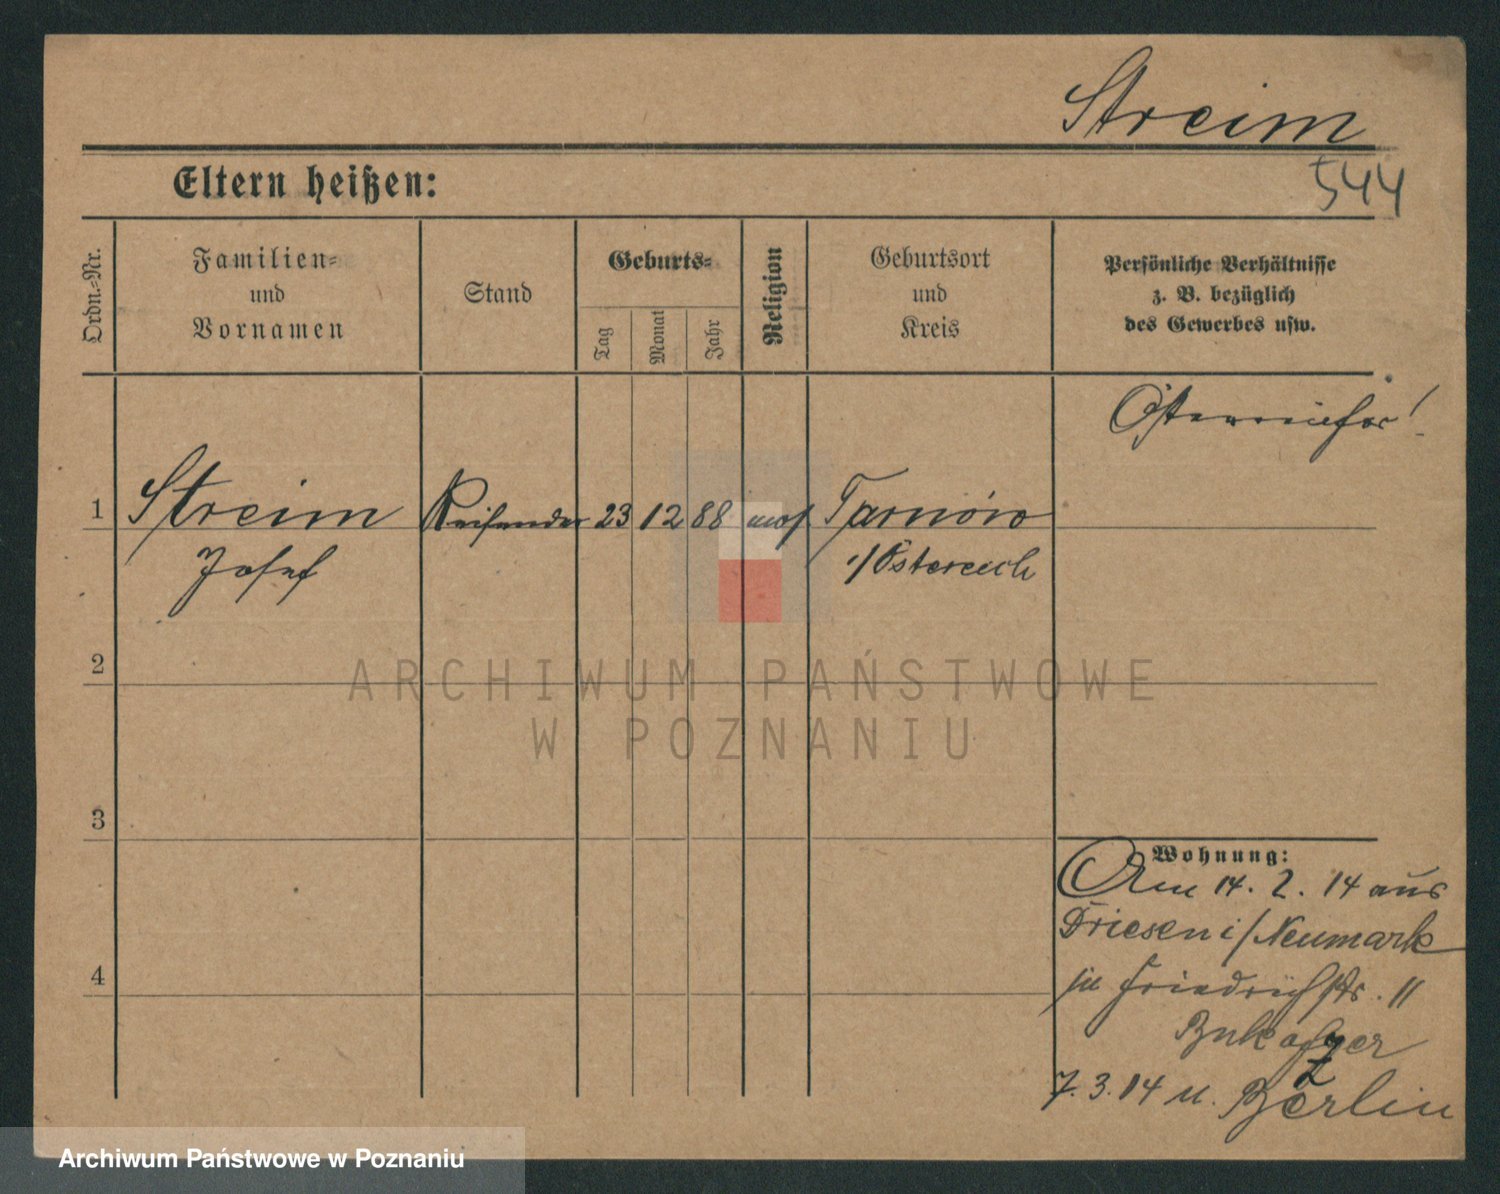 Streim
544
Eltern heißen:
Ordn.-Nr.
Familien-
und
Vornamen
Stand
Geburts-
Tag
Monat
Jahr
Religion
Geburtsort
und
Kreis
Persönliche Verhältnisse
z. B. bezüglich
des Gewerbes usw.
Österreicher!
1 Streim Reisender 23 12 88 mos Tarnów
Josef i/Östereich
2
ARCHIWUM PAŃSTWOWE
W POZNANIU
3
Wohnung:
Am 14. 2. 14 aus
Driesen i/Neumark
in Friedrichstr. 11
4
7.3.14 n. Berlin
Archiwum Państwowe w Poznaniu